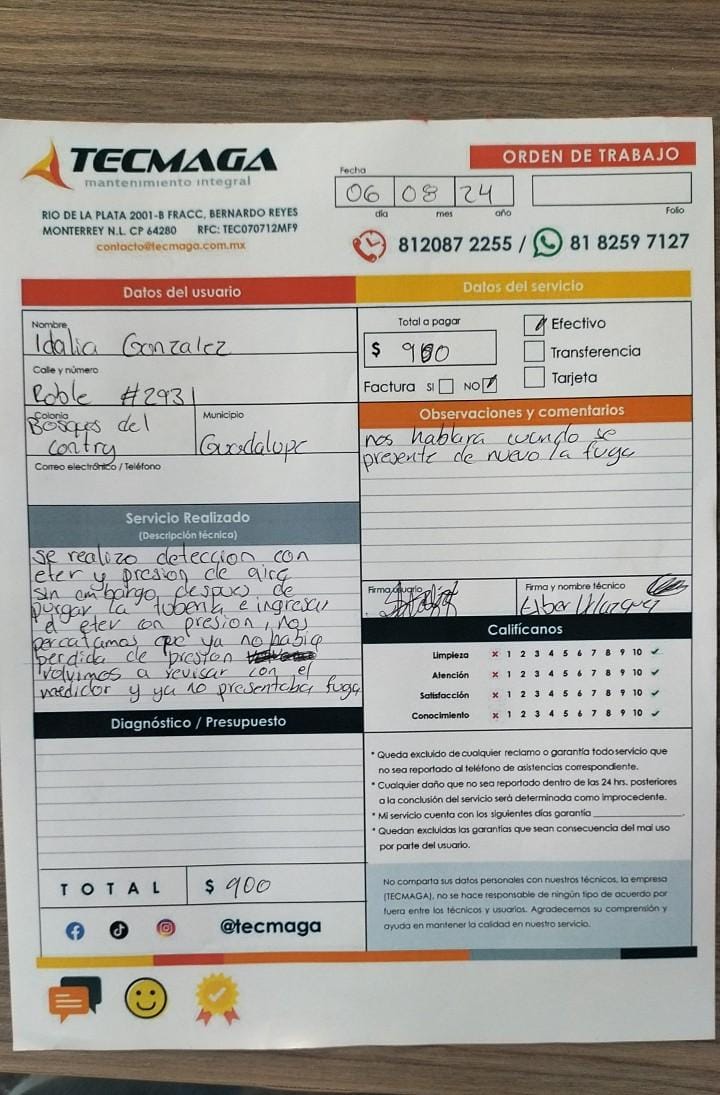 TECMAGA
mantenimiento integral
ORDEN DE TRABAJO
Fecha
06 08 24
día mes año
Folio
RIO DE LA PLATA 2001-B FRACC, BERNARDO REYES
MONTERREY N.L. CP 64280 RFC: TEC070712MF9
contacto@tecmaga.com.mx
812087 2255 / 81 8259 7127
Datos del usuario
Nombre
Idalia Gonzalez
Calle y número
Roble #2931
Colonia
Bosques del
contry
Municipio
Guadalupe
Correo electrónico / Teléfono
Datos del servicio
Total a pagar
$ 900
Efectivo
Transferencia
Tarjeta
Factura SI NO
Observaciones y comentarios
nos hablara cuando se
presente de nuevo la fuga
Servicio Realizado
(Descripción técnica)
se realizo deteccion con
eter y presion de aire
sin embargo, despues de
purgar la tuberia e ingresar
el eter con presion, nos
percatamos que ya no habia
perdida de presion
volvimos a revisar con el
medidor y ya no presentaba fuga
Firma usuario
Firma y nombre técnico
Califícanos
Limpieza x 1 2 3 4 5 6 7 8 9 10 ✓
Atención x 1 2 3 4 5 6 7 8 9 10 ✓
Satisfacción x 1 2 3 4 5 6 7 8 9 10 ✓
Conocimiento x 1 2 3 4 5 6 7 8 9 10 ✓
Diagnóstico / Presupuesto
* Queda excluido de cualquier reclamo o garantía todo servicio que
no sea reportado al teléfono de asistencias correspondiente.
* Cualquier daño que no sea reportado dentro de las 24 hrs. posteriores
a la conclusión del servicio será determinada como improcedente.
* Mi servicio cuenta con los siguientes días garantía ____________.
* Quedan excluidas las garantías que sean consecuencia del mal uso
por parte del usuario.
TOTAL $ 900
@tecmaga
No comparta sus datos personales con nuestros técnicos, la empresa
(TECMAGA), no se hace responsable de ningún tipo de acuerdo por
fuera entre los técnicos y usuarios. Agradecemos su comprensión y
ayuda en mantener la calidad en nuestro servicio.